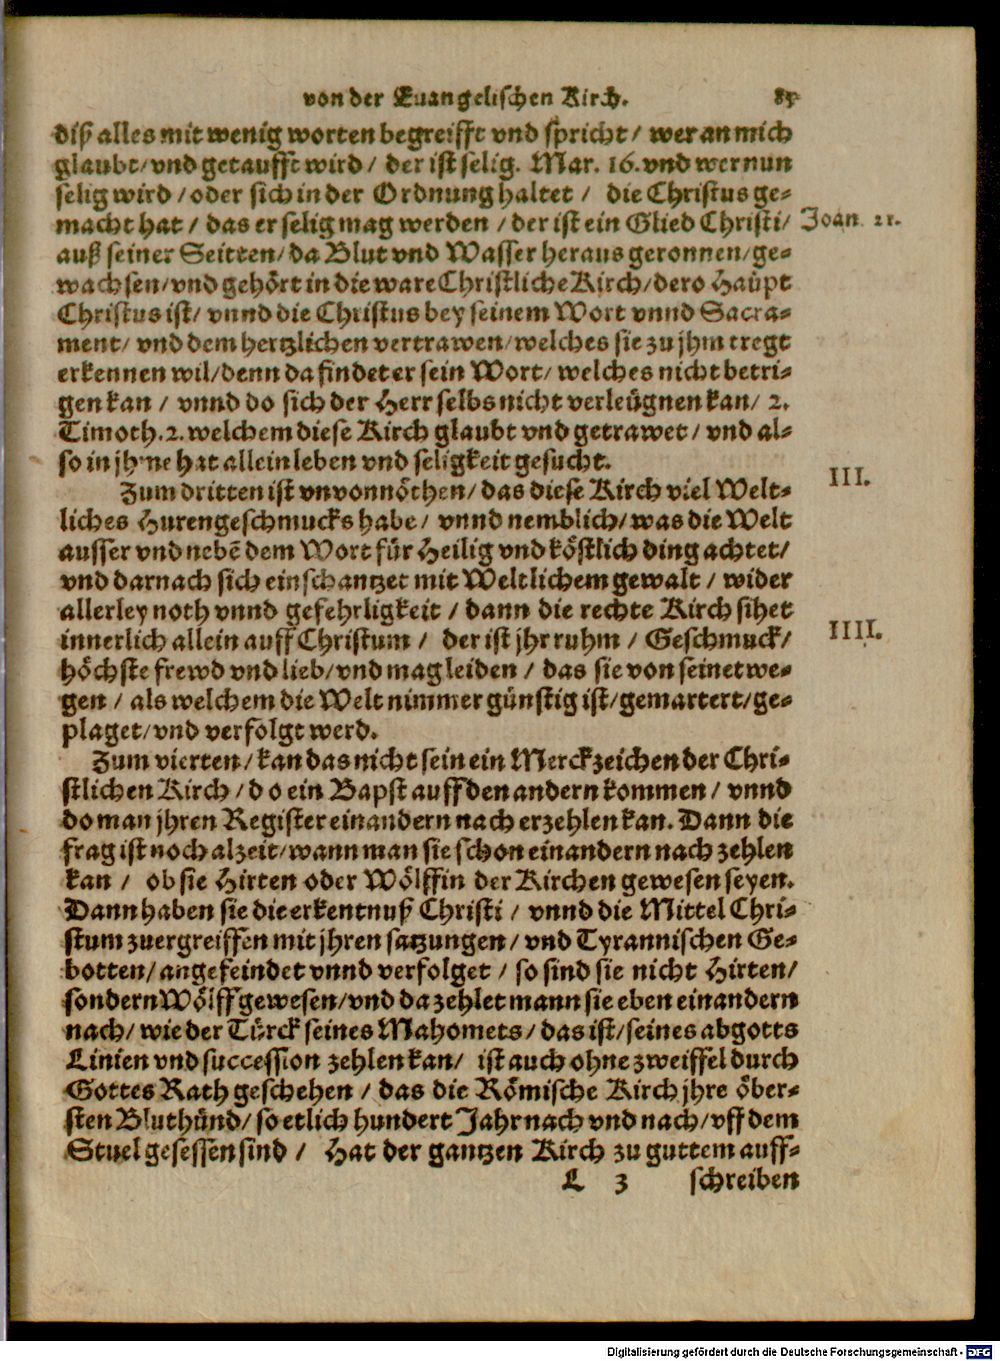 von der Euangelischen Kirch. 85
diß alles mit wenig worten begreifft vnd spricht / wer an mich
glaubt / vnd getaufft wird / der ist selig. Mar. 16. vnd wer nun
selig wird / oder sich in der Ordnung haltet / die Christus ge⸗
macht hat / das er selig mag werden / der ist ein Glied Christi / Joan. 21.
auß seiner Seitten / da Blut vnd Wasser heraus geronnen / ge⸗
wachsen / vnd gehört in die ware Christliche Kirch / dero Haüpt
Christus ist / vnnd die Christus bey seinem Wort vnnd Sacra⸗
ment / vnd dem hertzlichen vertrawen / welches sie zu jhm tregt
erkennen wil / denn da findet er sein Wort / welches nicht betri⸗
gen kan / vnnd do sich der Herr selbs nicht verleügnen kan / 2.
Timoth. 2. welchem diese Kirch glaubt vnd getrawet / vnd al⸗
so in jhme hat allein leben vnd seligkeit gesucht.
III.
Zum dritten ist vnvonnöthen / das diese Kirch viel Welt⸗
liches Hurengeschmucks habe / vnnd nemblich / was die Welt
ausser vnd nebē dem Wort für Heilig vnd köstlich ding achtet /
vnd darnach sich einschantzet mit Weltlichem gewalt / wider
allerley noth vnnd gefehrligkeit / dann die rechte Kirch sihet
innerlich allein auff Christum / der ist jhr ruhm / Geschmuck / IIII.
höchste frewd vnd lieb / vnd mag leiden / das sie von seinet we⸗
gen / als welchem die Welt nimmer günstig ist / gemartert / ge⸗
plaget / vnd verfolgt werd.
Zum vierten / kan das nicht sein ein Merckzeichen der Chri⸗
stlichen Kirch / do ein Bapst auff den andern kommen / vnnd
do man jhren Register einandern nach erzehlen kan. Dann die
frag ist noch alzeit / wann man sie schon einandern nach zehlen
kan / ob sie Hirten oder Wölff in der Kirchen gewesen seyen.
Dann haben sie die erkentnuß Christi / vnnd die Mittel Chri⸗
stum zuergreiffen mit jhren satzungen / vnd Tyrannischen Ge⸗
botten / angefeindet vnnd verfolget / so sind sie nicht Hirten /
sondern Wölff gewesen / vnd da zehlet mann sie eben einandern
nach / wie der Türck seines Mahomets / das ist / seines abgotts
Linien vnd succession zehlen kan / ist auch ohne zweiffel durch
Gottes Rath geschehen / das die Römische Kirch jhre öber⸗
sten Bluthünd / so etlich hundert Jahr nach vnd nach / vff dem
Stuel gesessen sind / Hat der gantzen Kirch zu guttem auff⸗
L 3 schreiben
Digitalisierung gefördert durch die Deutsche Forschungsgemeinschaft - DFG